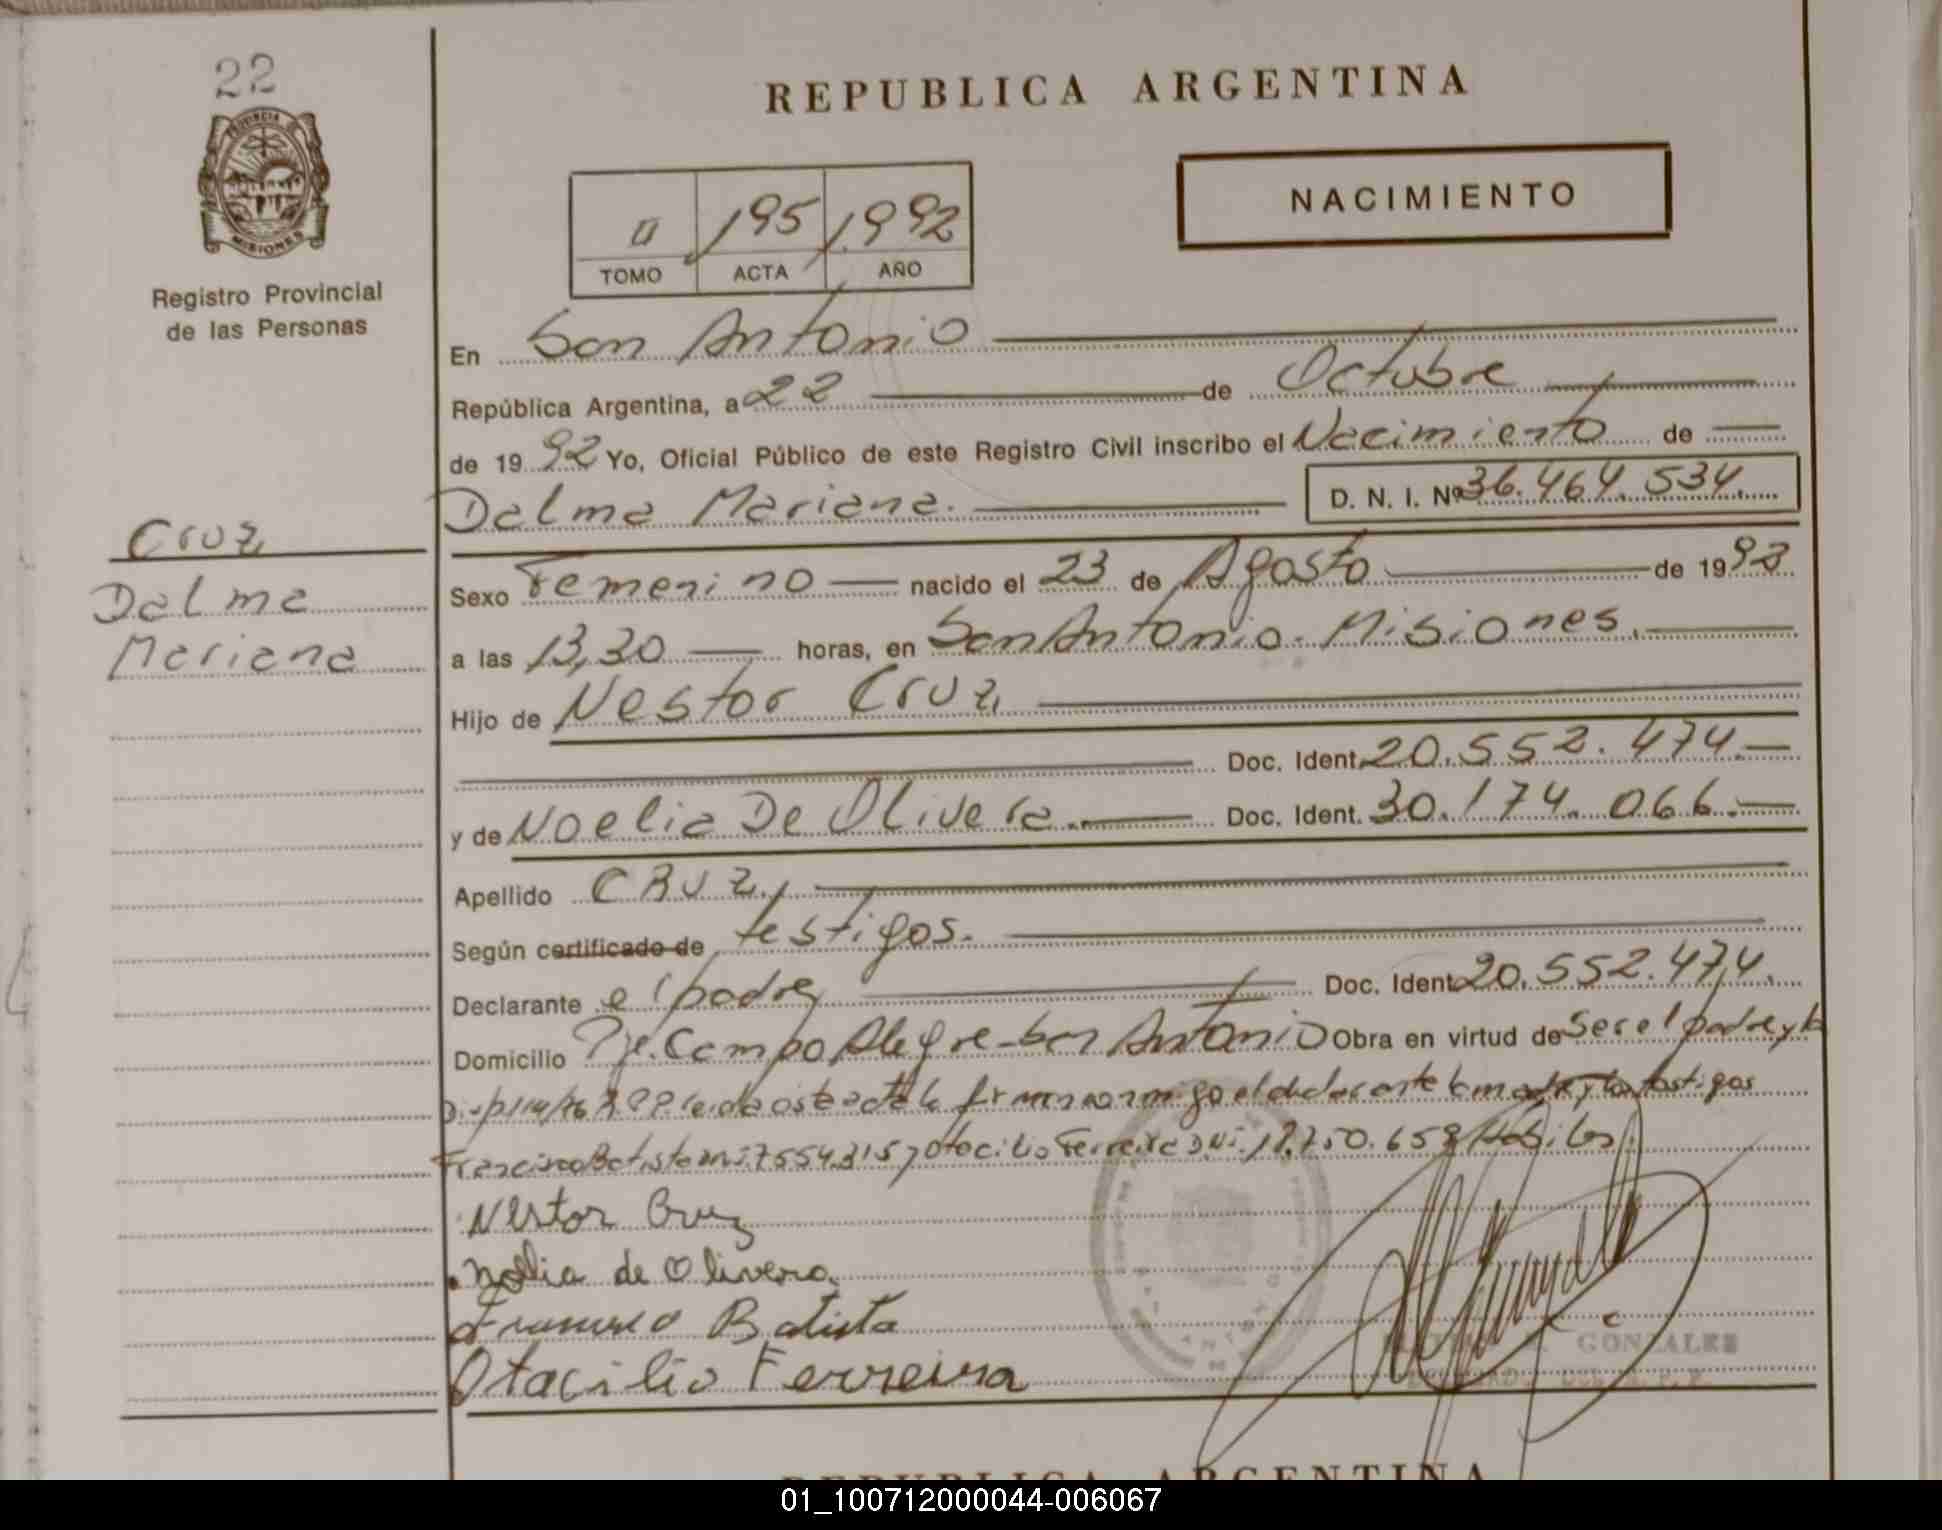 22
PROVINCIA DE
MISIONES
Registro Provincial
de las Personas
REPUBLICA ARGENTINA
NACIMIENTO
195 1992
TOMO ACTA AÑO
En San Antonio
República Argentina, a 22 de Octubre
de 19 92 Yo, Oficial Público de este Registro Civil inscribo el Nacimiento de
Dalma Mariana. D. N. I. Nº 36.464.534
Cruz
Dalma
Mariana
Sexo Femenino nacido el 23 de Agosto de 19 92
a las 13,30 horas, en San Antonio. Misiones.
Hijo de Nestor Cruz
Doc. Ident. 20.552.474.
y de Noelia De Olivera. Doc. Ident. 30.174.066.
Apellido CRUZ.
Según certificado de testigos.
Declarante el padre Doc. Ident. 20.552.474.
Domicilio Pje. Campo Alegre-San Antonio Obra en virtud de Ser el padre y la
leida este acta la firman conmigo el declarante la madre y los testigos
Francisco Batista 7554.315 y Otacilio Ferreira D.N.I. Habiles
Nestor Cruz
Noelia de Olivera.
Francisco Batista
Otacilio Ferreira
GONZALEZ
REPUBLICA ARGENTINA
01_100712000044-006067